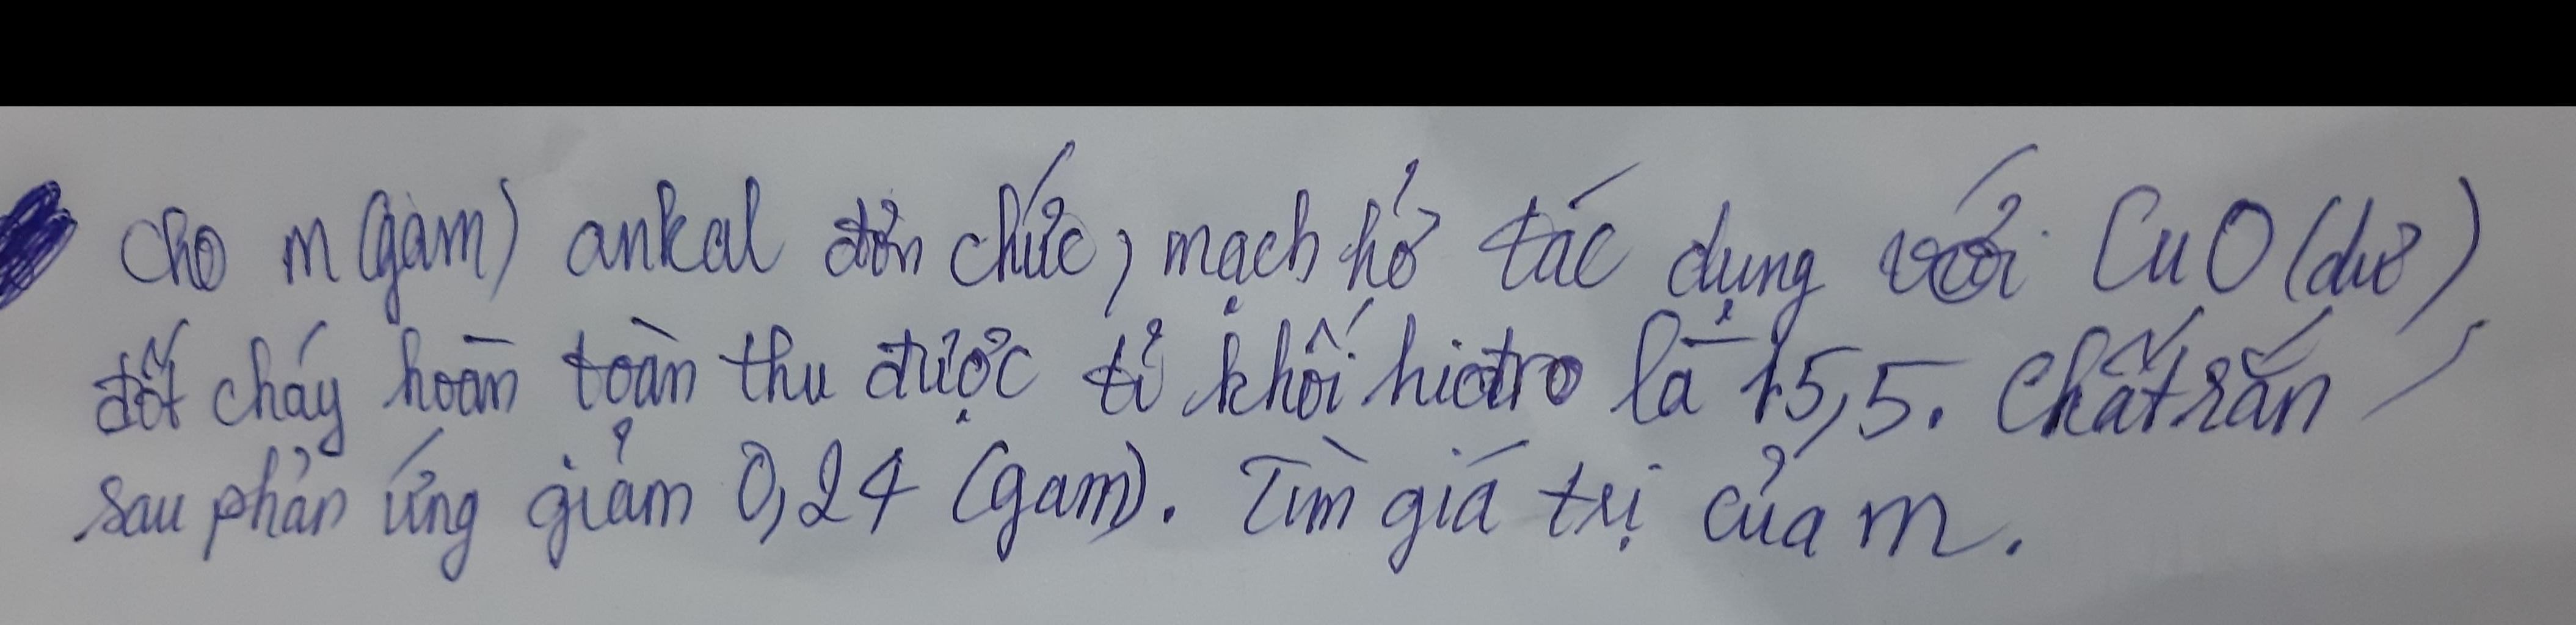 Cho m (gam) ankal đơn chức, mạch hở tác dụng với CuO (dư)
đốt cháy hoàn toàn thu được tỉ khối hiđro là 15,5. Chất rắn
sau phản ứng giảm 0,24 (gam). Tìm giá trị của m.